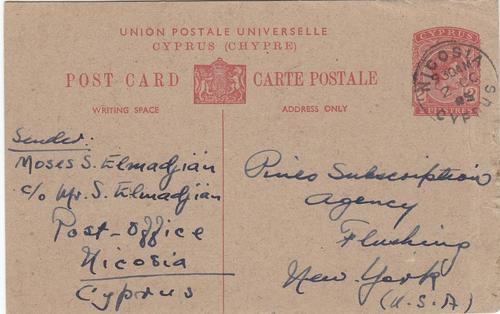 UNION POSTALE UNIVERSELLE
CYPRUS (CHYPRE)
POST CARD CARTE POSTALE
WRITING SPACE ADDRESS ONLY
CYPRUS
PIASTRES
NICOSIA
CYPRUS
Sender:
Moses S. Elmadjian
c/o Mr. S. Elmadjian
Post-Office
Nicosia
Cyprus
Pines Subscription
Agency
Flushing
New York
(U.S.A)